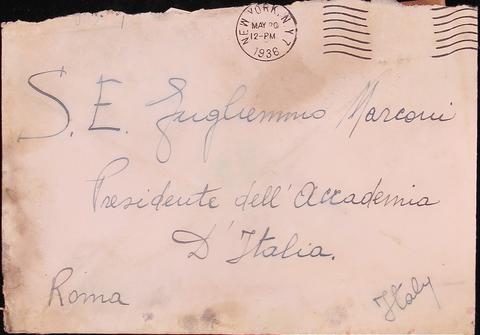 NEW YORK, N.Y. 7
MAY 20
12-PM
1936
S. E. Guglielmo Marconi
Presidente dell' Accademia
D'Italia.
Roma
Italy